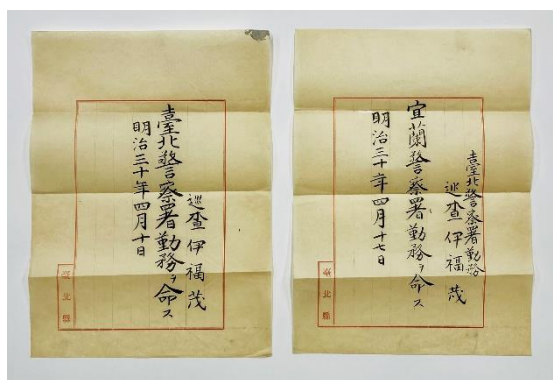 巡查 伊福茂
臺北警察署勤務ヲ命ス
明治三十年四月十日
臺北縣
臺北警察署勤務
巡查 伊福茂
宜蘭警察署勤務ヲ命ス
明治三十年四月十七日
臺北縣